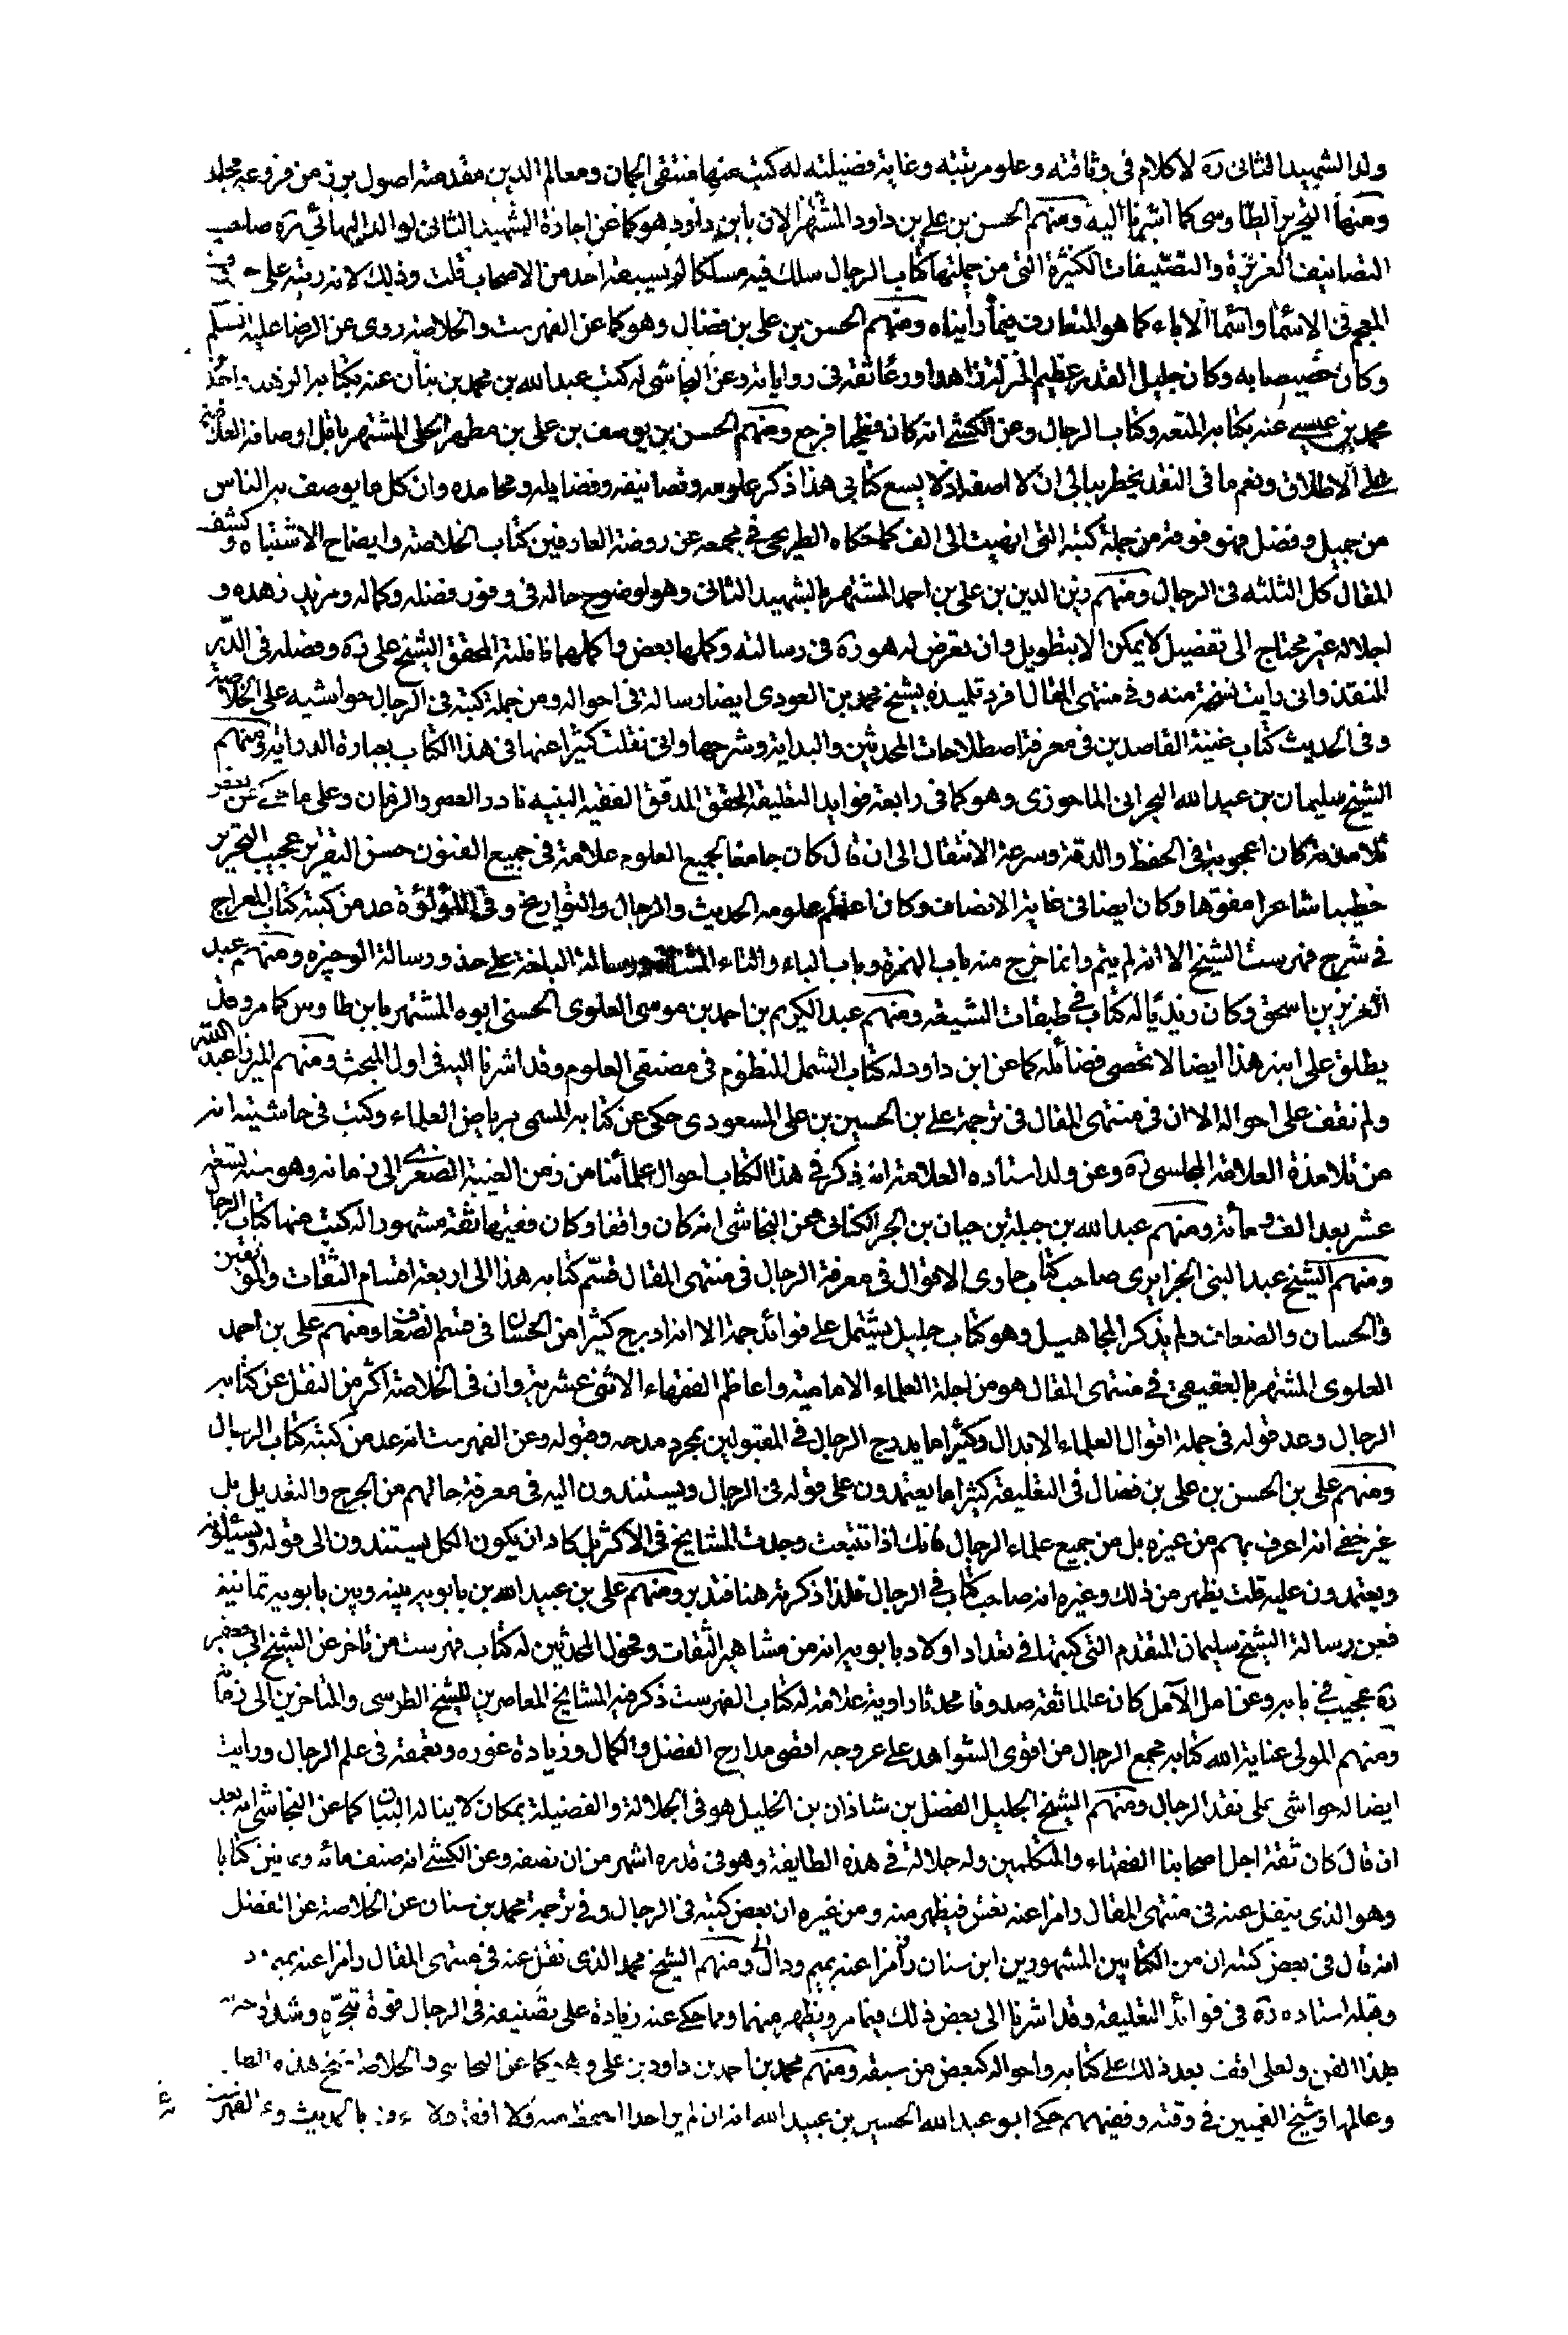 ولد الشهيد الثانى ره لا كلام فى وثاقته وعلو مرتبته وغاية فضيلته له كتب منها منتقى الجمان ومعالم الدين مقدمته اصول برز من فروعه مجلد
ومنها التحرير الطاوسى كما اشرنا اليه ومنهم الحسن بن على بن داود المشتهر الان بابن داود وهو كما عن اجازة الشهيد الثانى لوالد البهائى ره صاحب
التصانيف الغزيرة والتصنيفات الكثيرة التى من جملتها كتاب الرجال سلك فيه مسلكا لم يسبقه احد من الاصحاب قلت وذلك لانه رتبه على حروف
المعجم فى الاسماء واسماء الاباء كما هو المتعارف فيما رأيناه ومنهم الحسن بن على بن فضال وهو كما عن الفهرست والخلاصة روى عن الرضا عليه السلم
وكان خصيصا به وكان جليل القدر عظيم المنزلة زاهدا ورعا ثقة فى رواياته وعن النجاشى له كتب عبد الله بن محمد بن بنان عنه بكتابه الزهد واحمد
محمد بن عيسى عنه بكتابه المتعه وكتاب الرجال وعن الكشى انه كان فطحيا فرجع ومنهم الحسن بن يوسف بن على بن مطهر الحلى المشتهر باقل اوصافه العلامة
على الاطلاق ونعم ما فى النقد يخطر ببالى ان لا اصفه اذ لا يسع كتابى هذا ذكر علومه وتصانيفه وفضايله ومحامده وان كل ما يوصف به الناس
من جميل وفضل فهو فوقه من جملة كتبه التى انهيت الى الف كما حكاه الطريحى فى مجمعه عن روضة العارفين كتاب الخلاصة وايضاح الاشتباه وكشف
المقال كل الثلثه فى الرجال ومنهم زين الدين بن على بن احمد المشتهر بالشهيد الثانى وهو لوضوح حاله فى وفور فضله وكماله ومزيد زهده و
اجلاله غير محتاج الى تفصيل لا يمكن الا بتطويل وان تعرض له هو ره فى رسالته وكملها بعض واكملهما نافلته المحقق الشيخ على ره وفصله فى الدر
المنقذ وانى رايت نسخة منه وفى منتهى المقال افرد تلميذه شيخ محمد بن العودى ايضا رسالة فى احواله ومن جملة كتبه فى الرجال حواشيه على الخلاصة
وفى الحديث كتاب غنية القاصدين فى معرفة اصطلاحات المحدثين والبداية وشرحها وانى نقلت كثيرا عنها فى هذا الكتاب بعبارة الدراية ومنهم
الشيخ سليمان بن عبد الله البحرانى الماحوزى وهو كما فى رابعة فوايد التعليقة المحقق المدقق الفقيه النبيه نادر العصر والزمان وعلى ما حكى عن بعض
تلامذته كان اعجوبة فى الحفظ والدقة وسرعة الانتقال الى ان قال كان جامعا لجميع العلوم علامة فى جميع الفنون حسن التقرير عجيب التحرير
خطيبا شاعرا مفوها وكان ايضا فى غاية الانصاف وكان اعظم علومه الحديث والرجال والتواريخ وفى اللؤلؤة عد من كتبه كتاب المعراج
فى شرح فهرست الشيخ الا انه لم يتم وانما خرج منه باب الهمزة وباب الباء والتاء المثناة ورسالة البلغة على حذو رسالة الوجيزه ومنهم عبد
العزيز بن اسحق وكان زيديا له كتاب فى طبقات الشيعه ومنهم عبد الكريم بن احمد بن موسى العلوى الحسنى ابوه المشتهر بابن طاوس كما مر وقد
يطلق على ابنه هذا ايضا لا تحصى فضائله كما عن ابن داود له كتاب الشمل المنظوم فى مصنفى العلوم وقد اشرنا اليه فى اول المبحث ومنهم الميرزا عبد الله
ولم نقف على احواله الا ان فى منتهى المقال فى ترجمة على بن الحسين بن على المسعودى حكى عن كتابه المسمى برياض العلماء وكتب فى حاشيته انه
من تلامذة العلامة المجلسى ره وعن ولد استاده العلامة انه ذكر فى هذا الكتاب احوال علمائنا من زمن الغيبة الصغرى الى زمانه وهو سنة تسعة
عشر بعد الف ومأته ومنهم عبد الله بن جبلة بن حيان بن الحر الكنانى فعن النجاشى انه كان واقفا وكان فقيها ثقة مشهورا له كتب منها كتاب الرجال
ومنهم الشيخ عبد النبى الجزايرى صاحب كتاب حاوى الاقوال فى معرفة الرجال فى منتهى المقال قسم كتابه هذا الى اربعة اقسام الثقات والموثقين
والحسان والضعاف ولم يذكر المجاهيل وهو كتاب جليل يشتمل على فوائد جمة الا انه ادرج كثيرا من الحسان فى قسم الضعاف ومنهم على بن احمد
العلوى المشتهر بالعقيقى فى منتهى المقال هو من اجلة العلماء الامامية واعاظم الفقهاء الاثنى عشرية وان فى الخلاصة اكثر من النقل عن كتابه
الرجال وعد قوله فى جملة اقوال العلماء الابدال وكثيرا ما يدرج الرجال فى المقبولين بمجرد مدحه وقبوله وعن الفهرست انه عد من كتبه كتاب الرجال
ومنهم على بن الحسن بن على بن فضال فى التعليقة كثيرا ما يعتمدون على قوله فى الرجال ويستندون اليه فى معرفة حالهم من الجرح والتعديل بل
غير خفى انه اعرف بهم من غيره بل من جميع علماء الرجال فانك اذا تتبعت وجدت المشايخ فى الاكثر بل كاد ان يكون الكل يستندون الى قوله ويسئلونه
ويعتمدون عليه قلت يظهر من ذلك وغيره انه صاحب كتاب فى الرجال فلذا ذكرته هنا فتدبر ومنهم على بن عبيد الله بن بابويه بينه وبين بابويه ثمانية
فعن رسالة الشيخ سليمان المتقدم التى كتبها فى تعداد اولاد بابويه انه من مشاهير الثقات وفحول المحدثين له كتاب فهرست من تاخر عن الشيخ ابى جعفر
ره عجيب فى بابه وعن امل الآمل كان عالما ثقه صدوقا محدثا راوية علامة له كتاب الفهرست ذكر فيه المشايخ المعاصرين للشيخ الطوسى والمتاخرين الى زمانه
ومنهم المولى عناية الله كتابه مجمع الرجال من اقوى الشواهد على عروجه اقصى مدارج الفضل والكمال وزيادة غوره وتعمقه فى علم الرجال ورايت
ايضا له حواشى على نقد الرجال ومنهم الشيخ الجليل الفضل بن شاذان بن الخليل هو فى الجلالة والفضيلة بمكان لا يناله البيان كما عن النجاشى انه بعد
ان قال كان ثقة اجل اصحابنا الفقهاء والمتكلمين وله جلالة فى هذه الطايفة وهو فى قدره اشهر من ان نصفه وعن الكشى انه صنف مائه وثمانين كتابا
وهو الذى ينقل عنه فى منتهى المقال رامزا عنه بفش فيظهر منه ومن غيره ان بعض كتبه فى الرجال وفى ترجمة محمد بن سنان عن الخلاصة عن الفضل
انه قال فى بعض كتبه ان من الكذابين المشهورين ابن سنان رامزا عنه بميم ودال ومنهم الشيخ محمد الذى نقل عنه فى منتهى المقال رامزا عنه
وقبله استاده ره فى فوائد التعليقة وقد اشرنا الى بعض ذلك فيما مر ويظهر منهما ومما حكى عنه زيادة على تصنيفه فى الرجال قوة تبحره وشدة
هذا الفن ولعلى اقف بعد ذلك على كتابه واحواله كبعض من سبقه ومنهم محمد بن احمد بن داود بن على وهو كما عن النجاشى والخلاصة شيخ هذه
وعالمها وشيخ القميين فى وقته وفقيههم حكى ابو عبد الله الحسين بن عبيد الله انه ان لم ير احدا احفظ منه ولا افقه ولا بالحديث وعن الفهرست